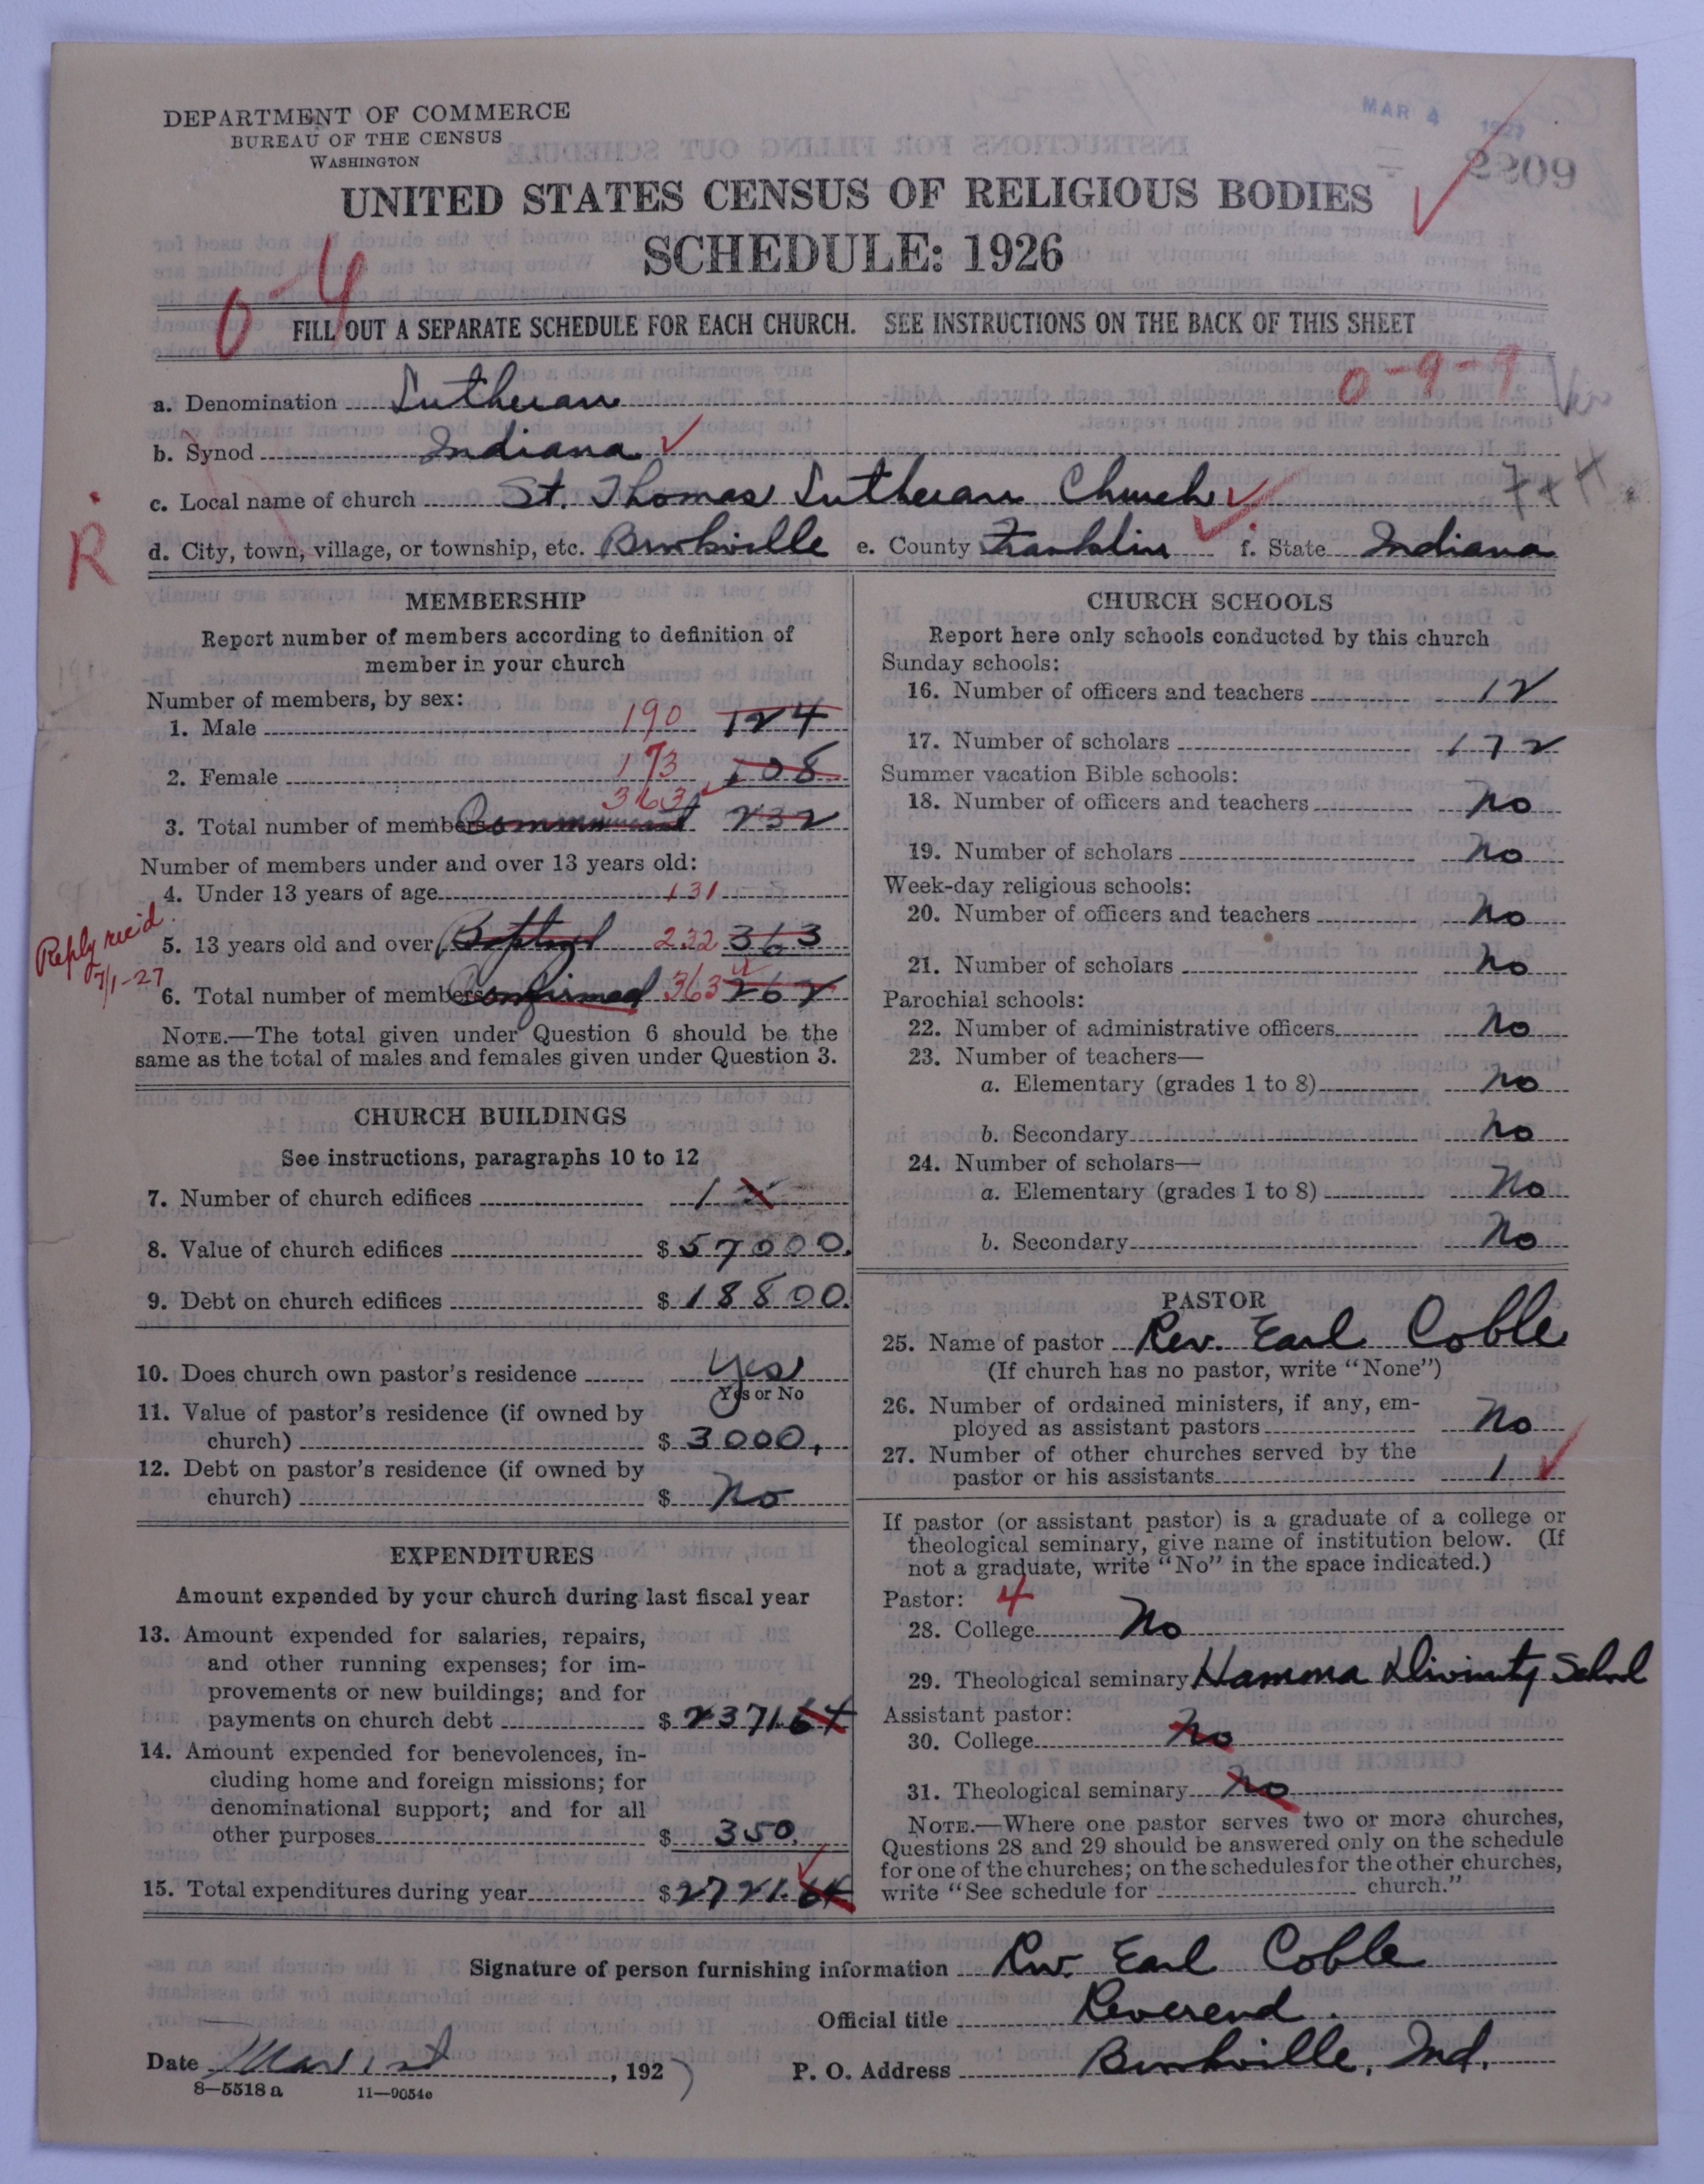 DEPARTMENT OF COMMERCE
BUREAU OF THE CENSUS
WASHINGTON
MAR 4 1927
2209
UNITED STATES CENSUS OF RELIGIOUS BODIES
SCHEDULE: 1926
0-4
FILL OUT A SEPARATE SCHEDULE FOR EACH CHURCH. SEE INSTRUCTIONS ON THE BACK OF THIS SHEET
0-9-9
a. Denomination Lutheran
b. Synod Indiana
c. Local name of church St. Thomas Lutheran Church
R
d. City, town, village, or township, etc. Brookville e. County Franklin f. State Indiana
MEMBERSHIP
Report number of members according to definition of
member in your church
Number of members, by sex:
1. Male 190 124
2. Female 173 108
363
3. Total number of members Communicant 232
Number of members under and over 13 years old:
4. Under 13 years of age 131
Reply rec'd.
7/1-27
5. 13 years old and over Baptized 232 363
6. Total number of members Confirmed 363 262
NOTE.—The total given under Question 6 should be the
same as the total of males and females given under Question 3.
CHURCH BUILDINGS
See instructions, paragraphs 10 to 12
7. Number of church edifices 1
8. Value of church edifices $ 57000.
9. Debt on church edifices $ 18800.
10. Does church own pastor's residence Yes
Yes or No
11. Value of pastor's residence (if owned by
church) $ 3000.
12. Debt on pastor's residence (if owned by
church) $ No
EXPENDITURES
Amount expended by your church during last fiscal year
13. Amount expended for salaries, repairs,
and other running expenses; for im-
provements or new buildings; and for
payments on church debt $ 2371.64
14. Amount expended for benevolences, in-
cluding home and foreign missions; for
denominational support; and for all
other purposes $ 350.
15. Total expenditures during year $ 2721.64
CHURCH SCHOOLS
Report here only schools conducted by this church
Sunday schools:
16. Number of officers and teachers 12
17. Number of scholars 172
Summer vacation Bible schools:
18. Number of officers and teachers No
19. Number of scholars No
Week-day religious schools:
20. Number of officers and teachers No
21. Number of scholars No
Parochial schools:
22. Number of administrative officers No
23. Number of teachers—
a. Elementary (grades 1 to 8) No
b. Secondary No
24. Number of scholars—
a. Elementary (grades 1 to 8) No
b. Secondary No
PASTOR
25. Name of pastor Rev. Earl Coble
(If church has no pastor, write "None")
26. Number of ordained ministers, if any, em-
ployed as assistant pastors No
27. Number of other churches served by the
pastor or his assistants 1
If pastor (or assistant pastor) is a graduate of a college or
theological seminary, give name of institution below. (If
not a graduate, write "No" in the space indicated.)
Pastor: 4
28. College No
29. Theological seminary Hamma Divinity School
Assistant pastor:
30. College No
31. Theological seminary No
NOTE.—Where one pastor serves two or more churches,
Questions 28 and 29 should be answered only on the schedule
for one of the churches; on the schedules for the other churches,
write "See schedule for church."
Signature of person furnishing information Rev. Earl Coble
Official title Reverend.
Date Mar 1st, 1927 P. O. Address Brookville, Ind.
8—5518 a 11—9054c